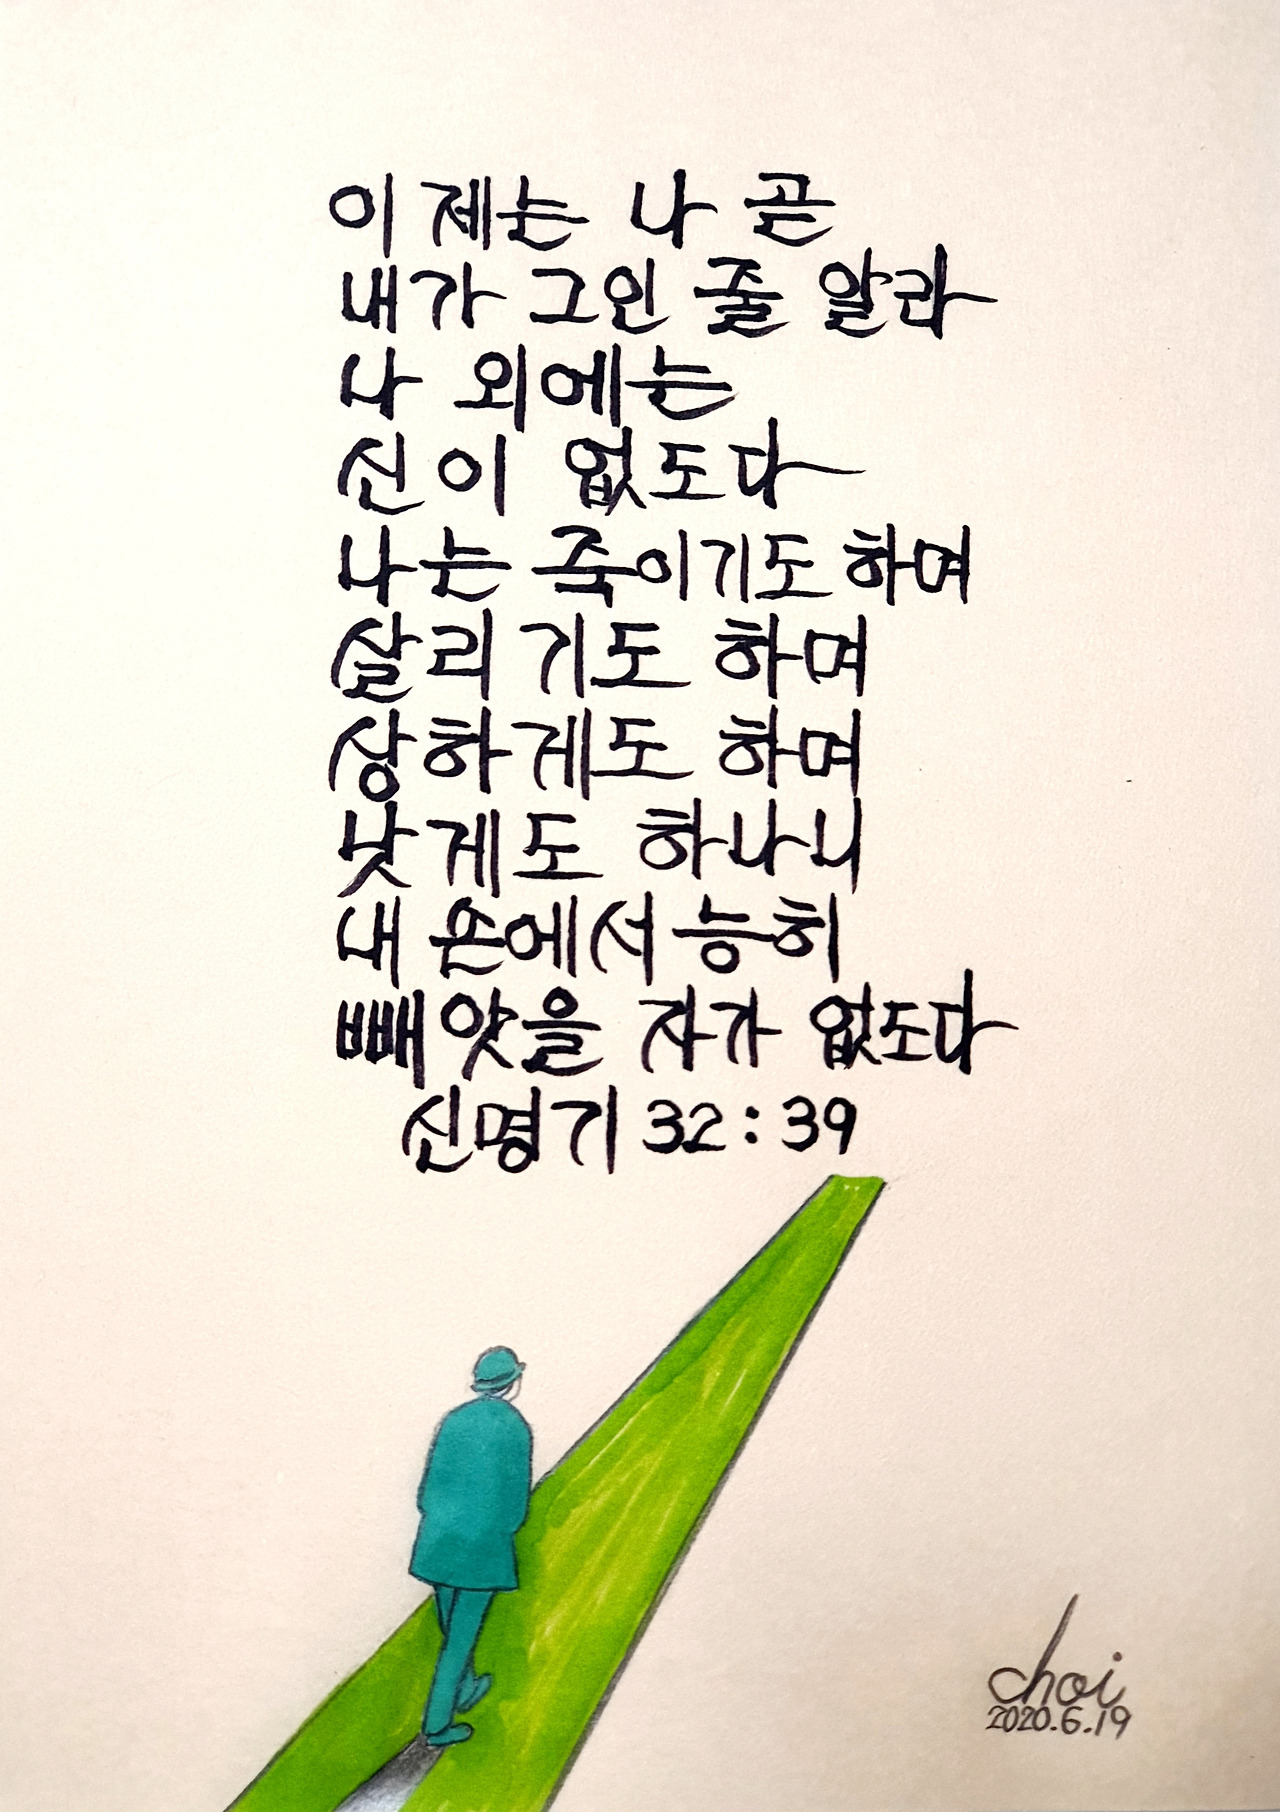 이제는 나 곧
내가 그인 줄 알라
나 외에는
신이 없도다
나는 죽이기도 하며
살리기도 하며
상하게도 하며
낫게도 하나니
내 손에서 능히
빼앗을 자가 없도다
신명기 32:39
choi
2020.6.19